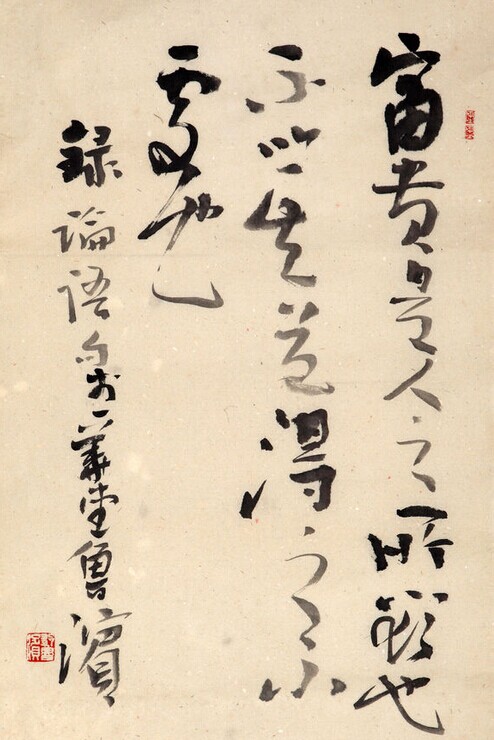 富貴是人之所欲也
不以其道得之不
處也
録論語句於堂魯濱